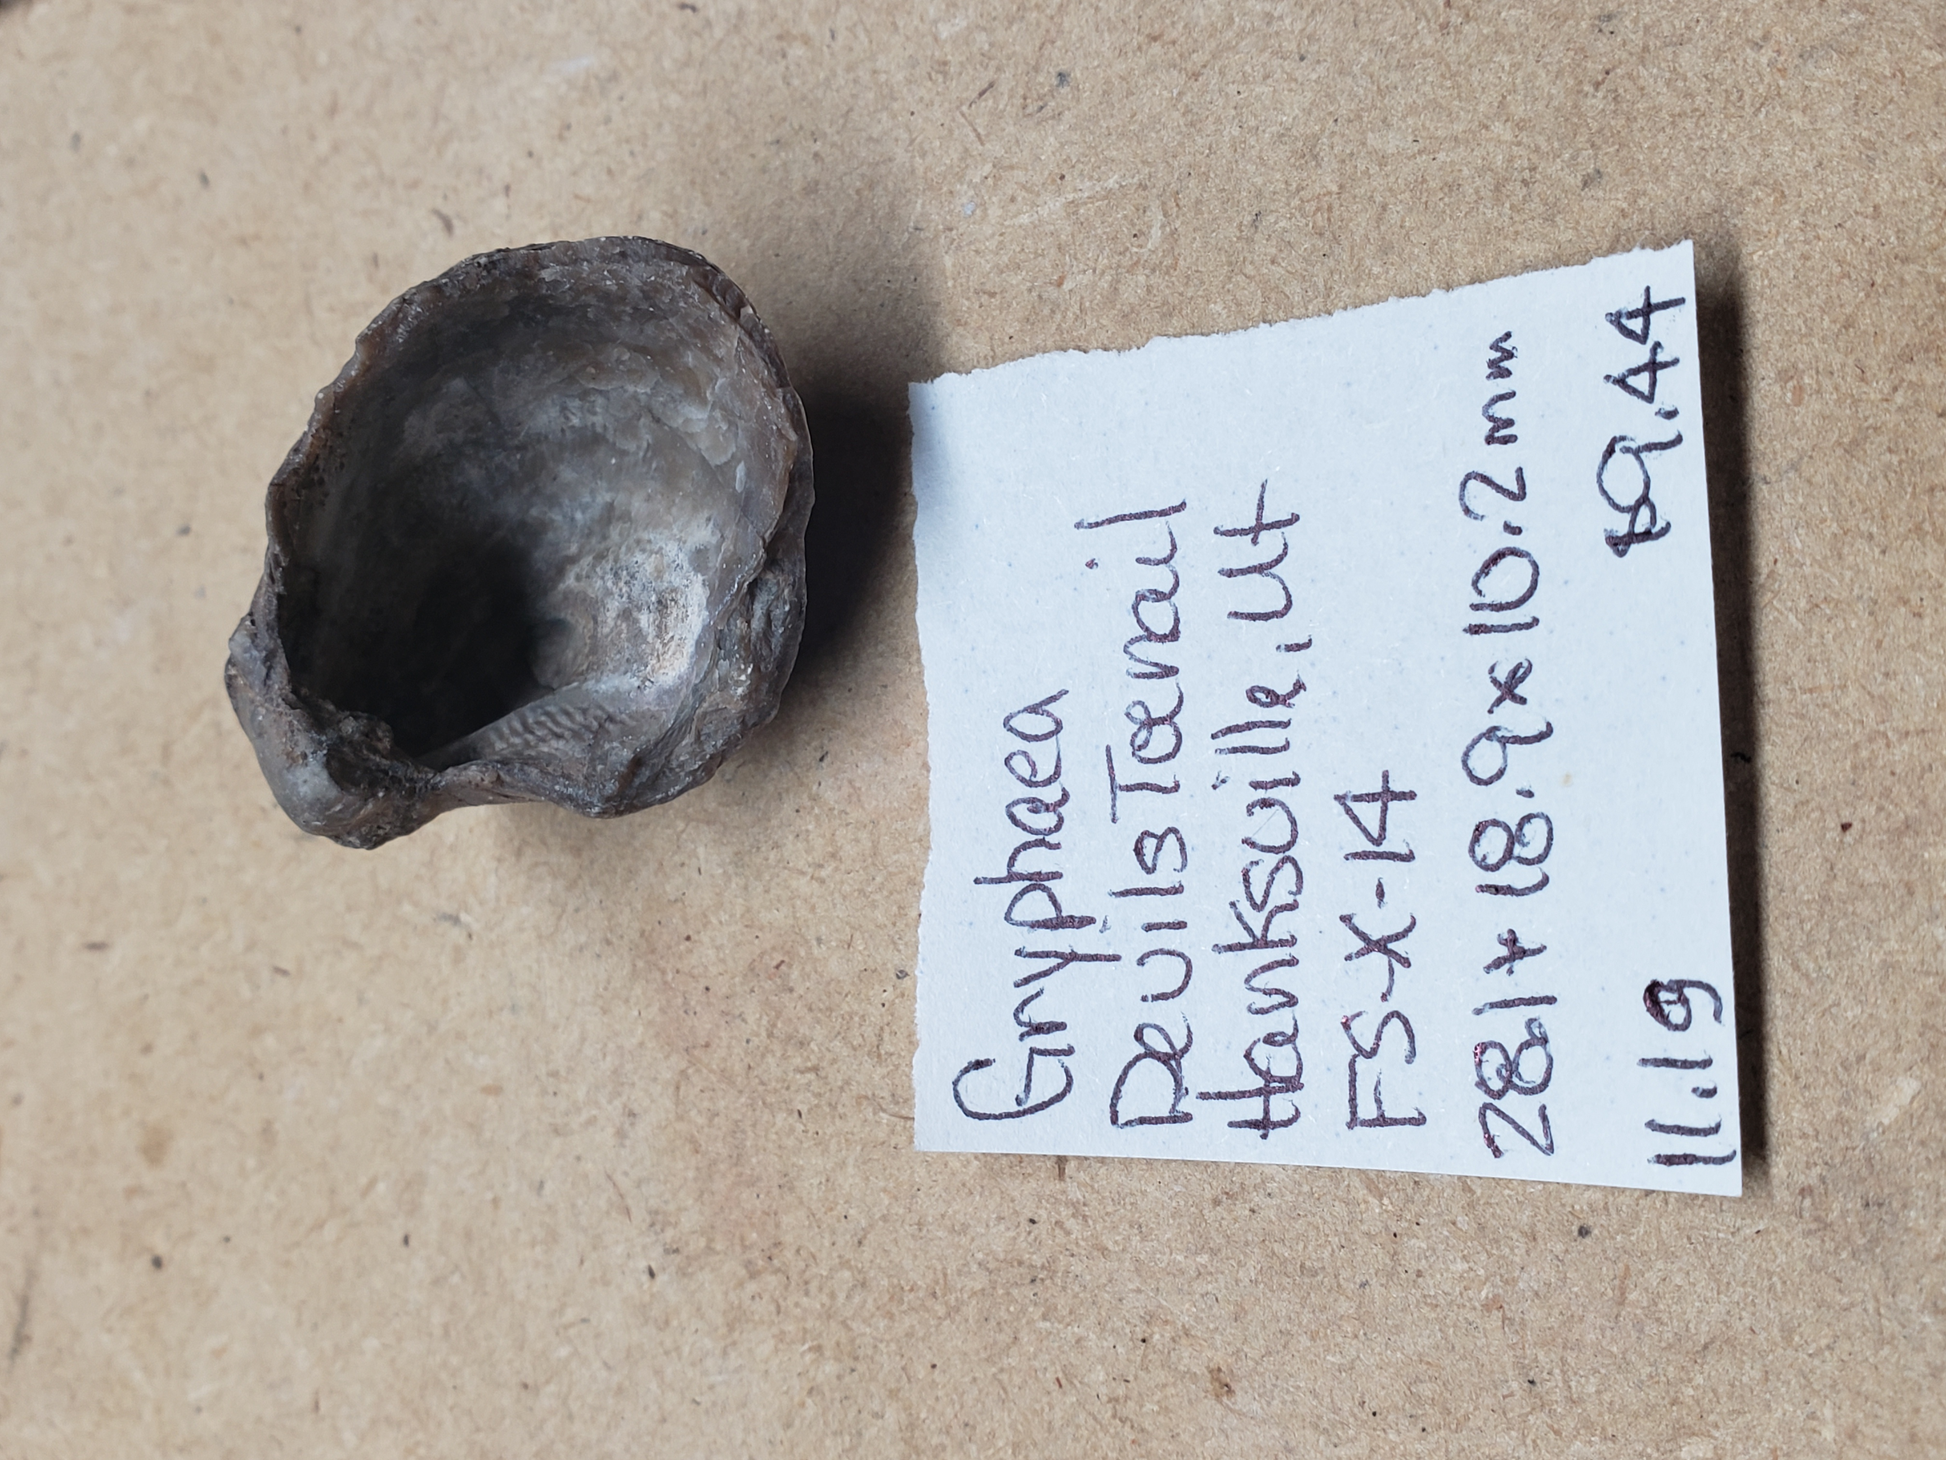 Gryphaea
Devils Toenail
Hanksville, Ut
FS-X-14
28.1 x 18.9 x 10.2 mm
11.1 g $9.44